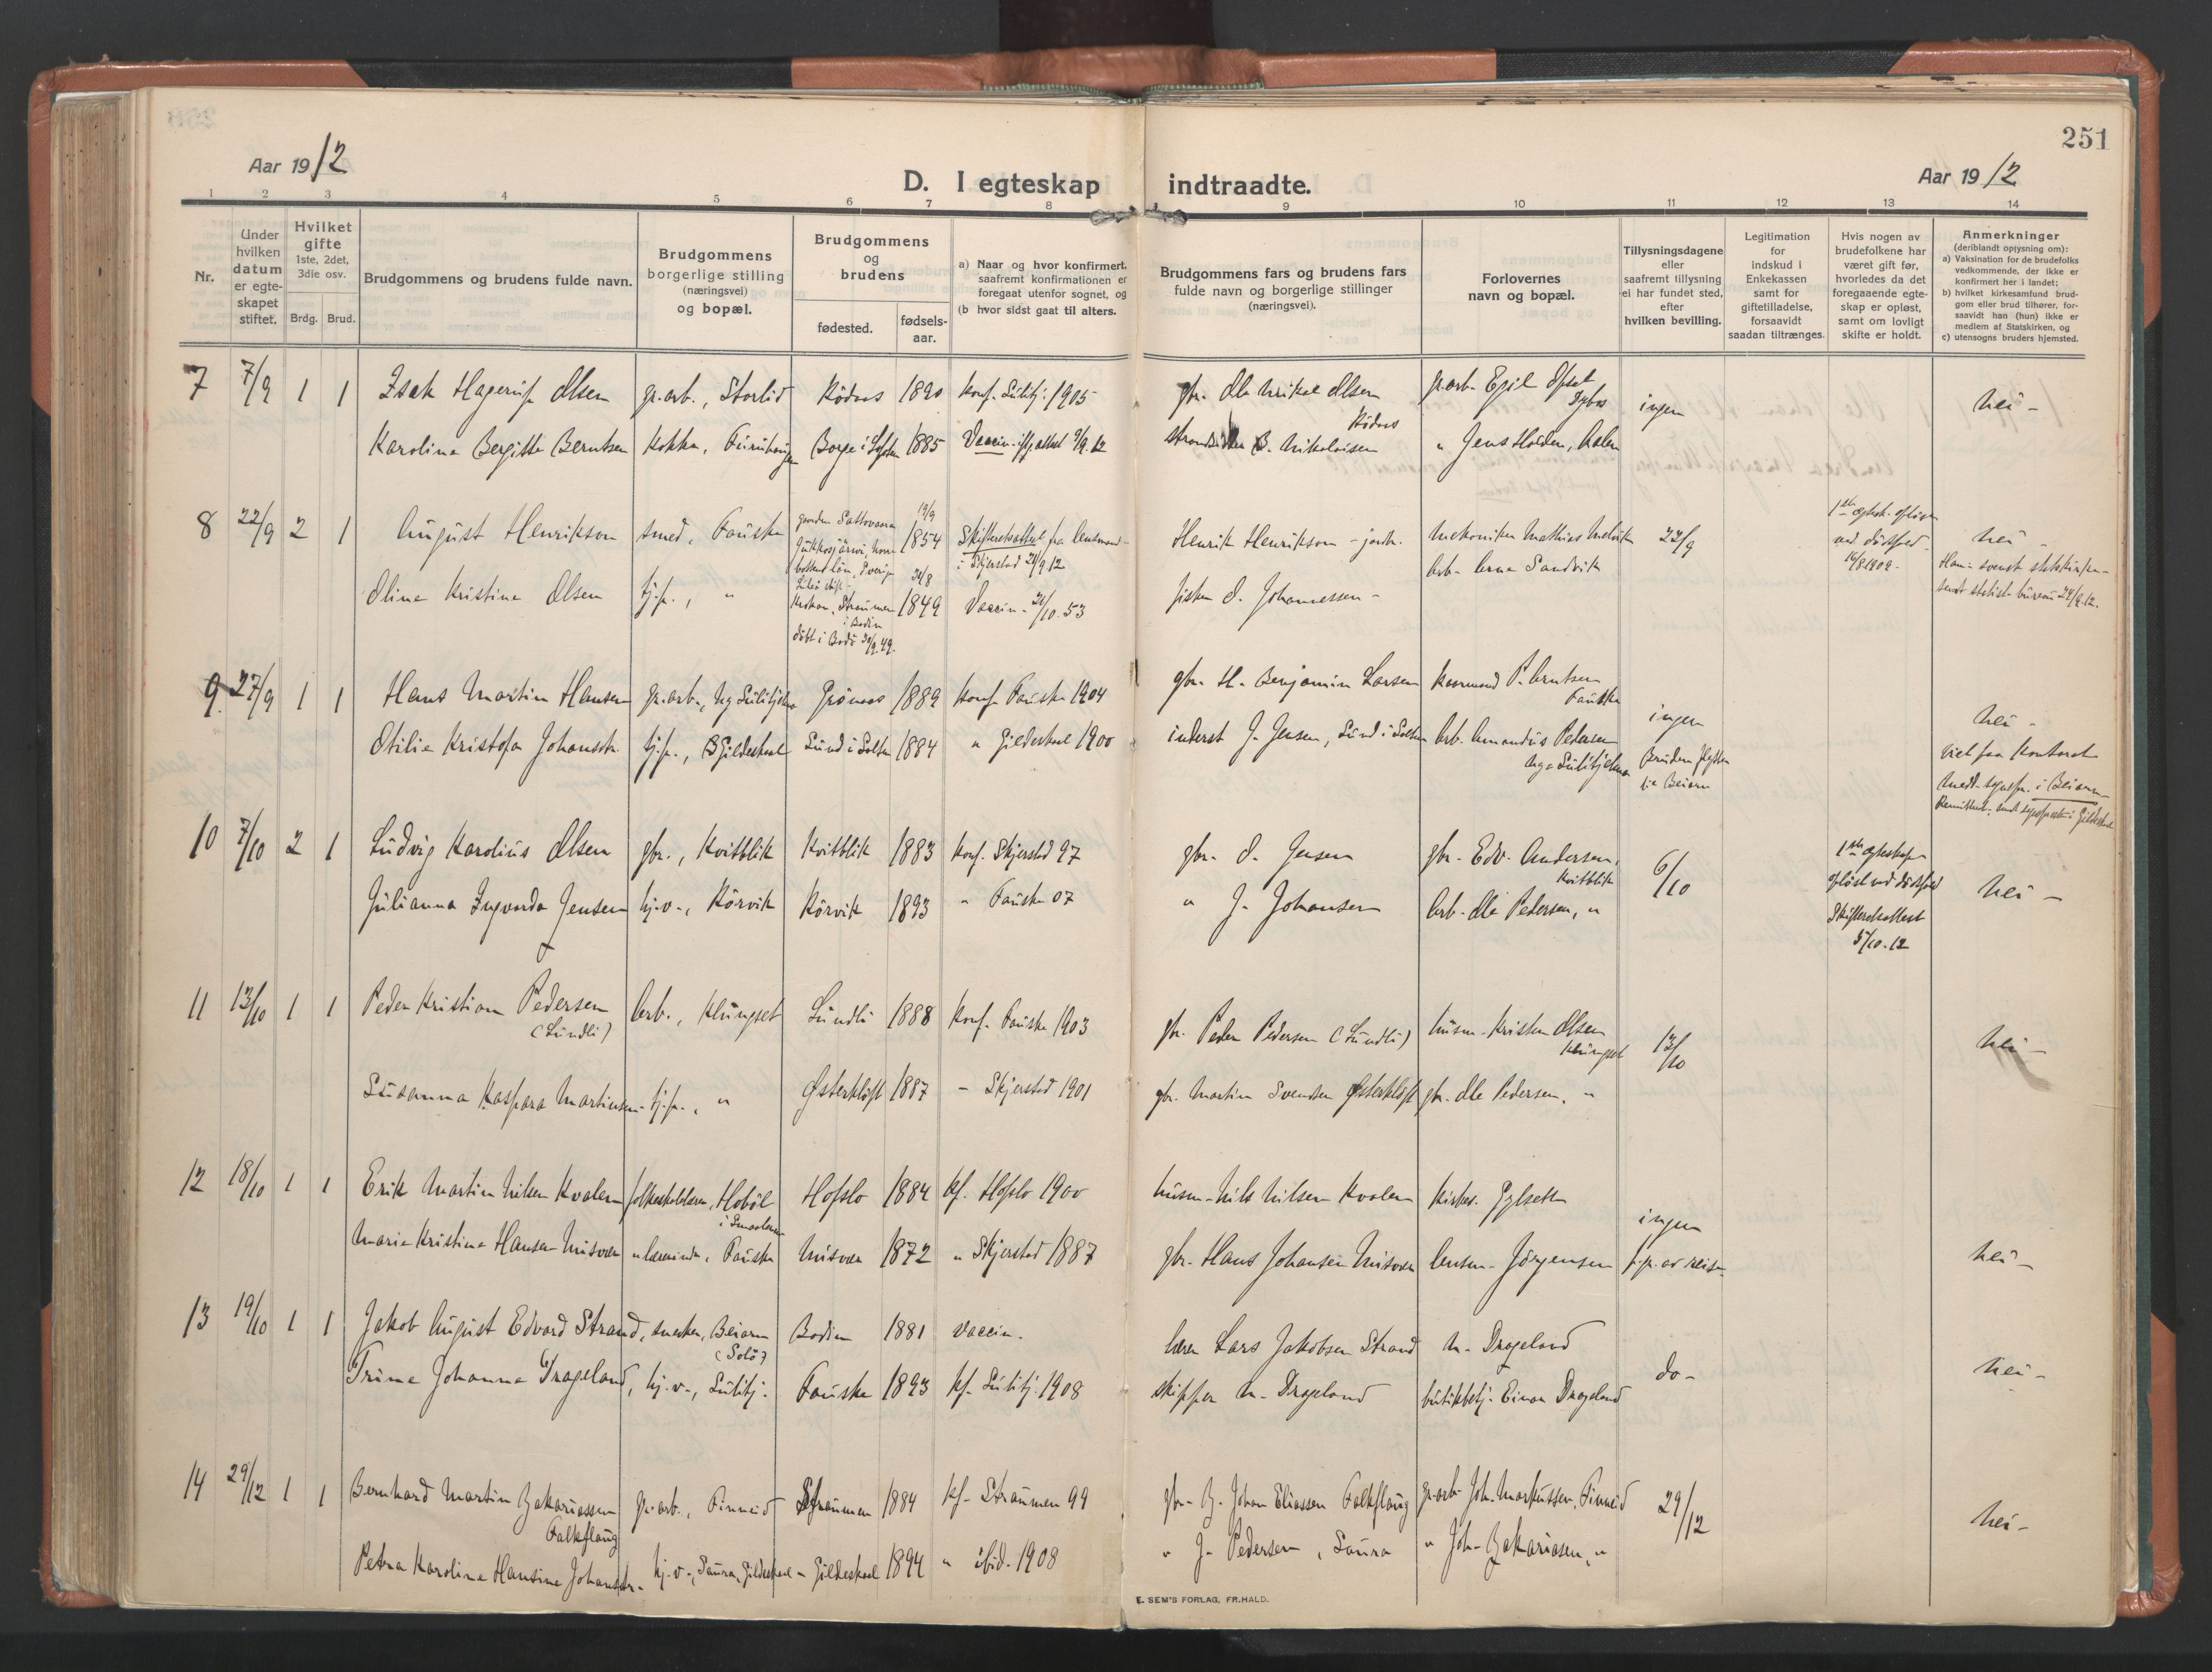 251
Aar 1912
D. I egteskap indtraadte.
Aar 1912
1 2 3 4 5 6 7 8 9 10 11 12 13 14
Nr.
Under hvilken datum er egteskapet stiftet.
Hvilket gifte 1ste, 2det, 3die osv.
Brdg. Brud.
Brudgommens og brudens fulde navn.
Brudgommens borgerlige stilling (næringsvei) og bopæl.
Brudgommens og brudens
fødested.
fødsels-aar.
a) Naar og hvor konfirmert, saafremt konfirmationen er foregaat utenfor sognet, og
(b hvor sidst gaat til alters.
Brudgommens fars og brudens fars fulde navn og borgerlige stillinger (næringsvei).
Forlovernes navn og bopæl.
Tillysningsdagene eller saafremt tillysning ei har fundet sted, efter hvilken bevilling.
Legitimation for indskud i Enkekassen samt for giftetilladelse, forsaavidt saadan tiltrænges.
Hvis nogen av brudefolkene har været gift før, hvorledes da det foregaaende egteskap er opløst, samt om lovligt skifte er holdt.
Anmerkninger (deriblandt opjysning om):
a) Vaksination for de brudefolks vedkommende, der ikke er konfirmert her i landet;
b) hvilket kirkesamfund brudgom eller brud tilhører, forsaavidt han (hun) ikke er medlem af Statskirken, og
c) utensogns bruders hjemsted.
7 7/9 1 1 Isak Hagerup Olsen gr.arb., Storlid Kodvos 1890 Konf. Sulitj. 1905 gbr. Ole Mikal Olsen gr.arb. Egil Opset ingen nei -
Karoline Bergitte Berntsen kokke, Furuhaugen Borge i Lofoten 1885 Vaccin. iflg. attest 9/9.12 B. Nikolaisen " Jens Holden,
8 22/9 2 1 August Henrikson smed, Fauske 19/9 1854 Skifteretsattest fra lensmand i Skjerstad 21/9.12 Henrik Henrikson - jordb. Mekaniker Mathias Melvik 22/9 1ste egtesk. opløst ved dødsfald 16/8 1902. nei -
Jukkasjärvi, Norrbottens län, Sverige
Han - svensk statskirke -
sendt statist. büreau 24/9.12.
Oline Kristine Olsen tj.p., " Straumen i Bodin 24/8 1849 Vaccin. 21/10.53 O. Johannessen - Arb. Arne Sandvik
døbt i Bodø 30/9.49.
9. 27/9 1 1 Hans Martin Hansen gr.arb., Ny Sulitjelma Grønaas 1889 Konf. Fauske 1904 gbr. H. Benjamin Larsen P. Arntsen Fauske ingen nei -
Otilie Kristofa Johansdtr. tj.p., Gildeskaal Sund i Salten 1884 " Gildeskaal 1900 inderst J. Jensen, Sund i Salten Arb. Amandus Pedersen Ny-Sulitjelma
Bruden flytter til Beiarn
Viet paa Kontoret
10 7/10 2 1 Ludvig Karolius Olsen gbr., Kvitblik Kvitblik 1883 Konf. Skjerstad 97 gbr. O. Jensen gbr. Edv. Andersen, Kvitblik 6/10 1ste egteskap opløst ved dødsfald Skifteretsattest 5/10.12 nei -
Julianna Ingvarda Jensen hj.v., Kørvik Kørvik 1893 " Fauske 07 " J. Johansen Arb. Ole Pedersen, "
11 13/10 1 1 Peder Kristian Pedersen (Lundli) Arb., Klungset Lundli 1888 Konf. Fauske 1903 gbr. Peder Pedersen (Lundli) husm. Kristen Olsen Klungset 13/10 nei -
Susanna Kaspara Martinsen tj.p., " Østerkløft 1887 - Skjerstad 1901 gbr. Martin Svendsen Østerkløft gbr. Ole Pedersen, "
12 18/10 1 1 Erik Martin Nilsen Kvalen folkeskolelærer, Hobøl i Smaalenene Hofslo 1884 kf. Hofslo 1900 husm. Nils Nilsen Kvalen kirkes. Gylseth ingen p.gr. av reise nei -
Marie Kristine Hansen Misvær " lærerinde, Fauske Misvær 1872 " Skjerstad 1887 gbr. Hans Johansen Misvær lensm. Jørgensen
13 19/10 1 1 Jakob August Edvard Strand, snekker, Beiarn (Solø) Bodin 1881 vaccin. lærer Lars Jakobsen Strand M. Drageland do- nei -
Trine Johanna Drageland, hj.v., Sulitj. Fauske 1893 kf. Sulitj. 1908 skipper M. Drageland butikbetj. Einar Drageland
14 29/12 1 1 Bernhard Martin Zakariassen Falkflaug gr.arb., Finneid Straumen 1884 kf. Straumen 99 gbr. Z. Johan Eliassen Falkflaug gr.arb. Joh. Markussen, Finneid 29/12 nei -
Petra Karoline Hansine Johansdtr. hj.v., Saura, Gildeskaal - Gildeskaal 1894 " ibid. 1908 " J. Pedersen, Saura " Joh. Zakariasen, "
E. SEM'S FORLAG, FR.HALD.